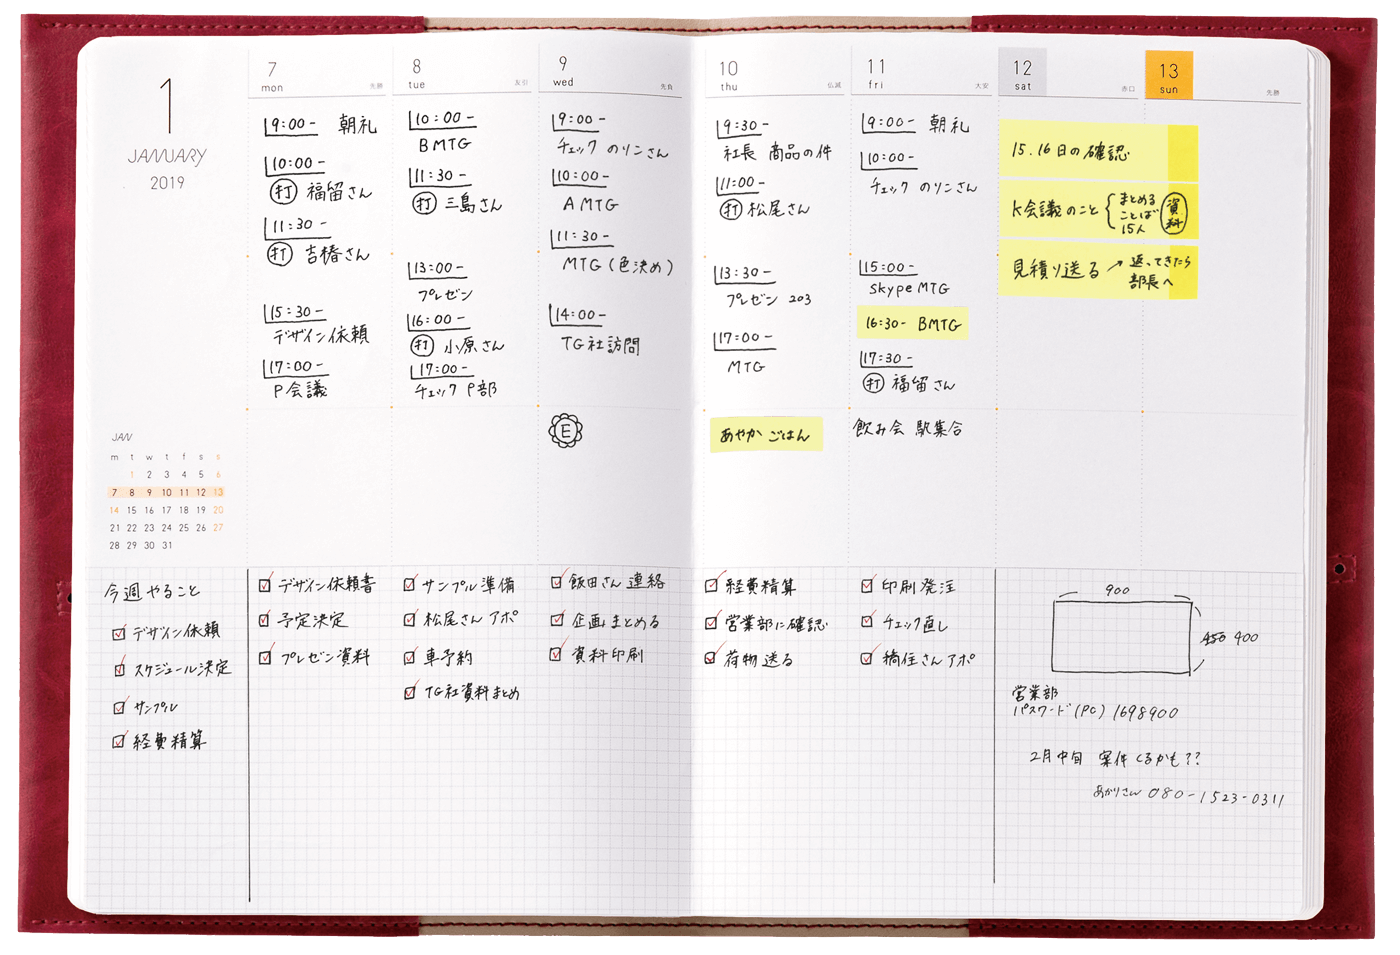 1
JANUARY
2019
JAN
m t w t f s s
1 2 3 4 5 6
7 8 9 10 11 12 13
14 15 16 17 18 19 20
21 22 23 24 25 26 27
28 29 30 31
7
mon 先勝
9:00- 朝礼
10:00-
打 福留さん
11:30-
打 吉椿さん
15:30-
デザイン依頼
17:00-
P会議
8
tue 友引
10:00-
BMTG
11:30-
打 三島さん
13:00-
プレゼン
16:00-
打 小原さん
17:00-
チェック P部
9
wed 先負
9:00-
チェック のリンさん
10:00-
AMTG
11:30-
MTG(色決め)
14:00-
TG社訪問
E
10
thu 仏滅
9:30-
社長 商品の件
11:00-
打 松尾さん
13:30-
プレゼン 203
17:00-
MTG
あやか ごはん
11
fri 大安
9:00- 朝礼
10:00-
チェック のリンさん
15:00-
skype MTG
16:30- BMTG
17:30-
打 福留さん
飲み会 駅集合
12
sat 赤口
13
sun 先勝
15.16日の確認
K会議のこと { まとめる
ことば
15人
資料
見積り送る → 返ってきたら
部長へ
今週やること
デザイン依頼
スケジュール決定
サンプル
経費精算
デザイン依頼書
予定決定
プレゼン資料
サンプル準備
松尾さん アポ
車予約
TG社資料まとめ
飯田さん 連絡
企画まとめる
資料印刷
経費精算
営業部に確認
荷物送る
印刷発注
チェック直し
さんアポ
900
450 400
営業部
パスワード(PC) 1698900
2月中旬 案件くるかも??
あかりさん 080-1523-0311